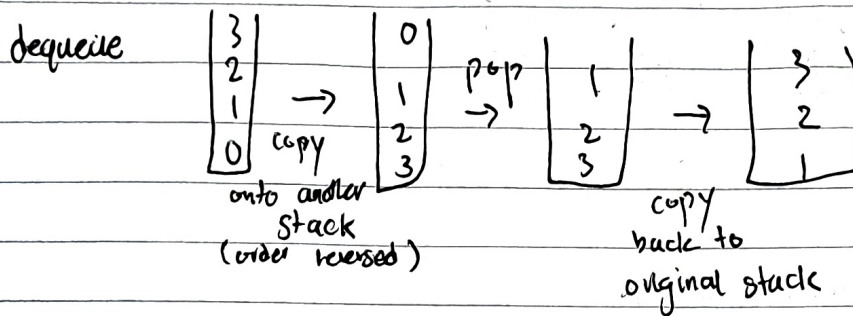 dequeue
3
2
1
0
→
copy
onto another
stack
(order reversed)
0
1
2
3
pop
→
1
2
3
→
copy
back to
original stack
3
2
1